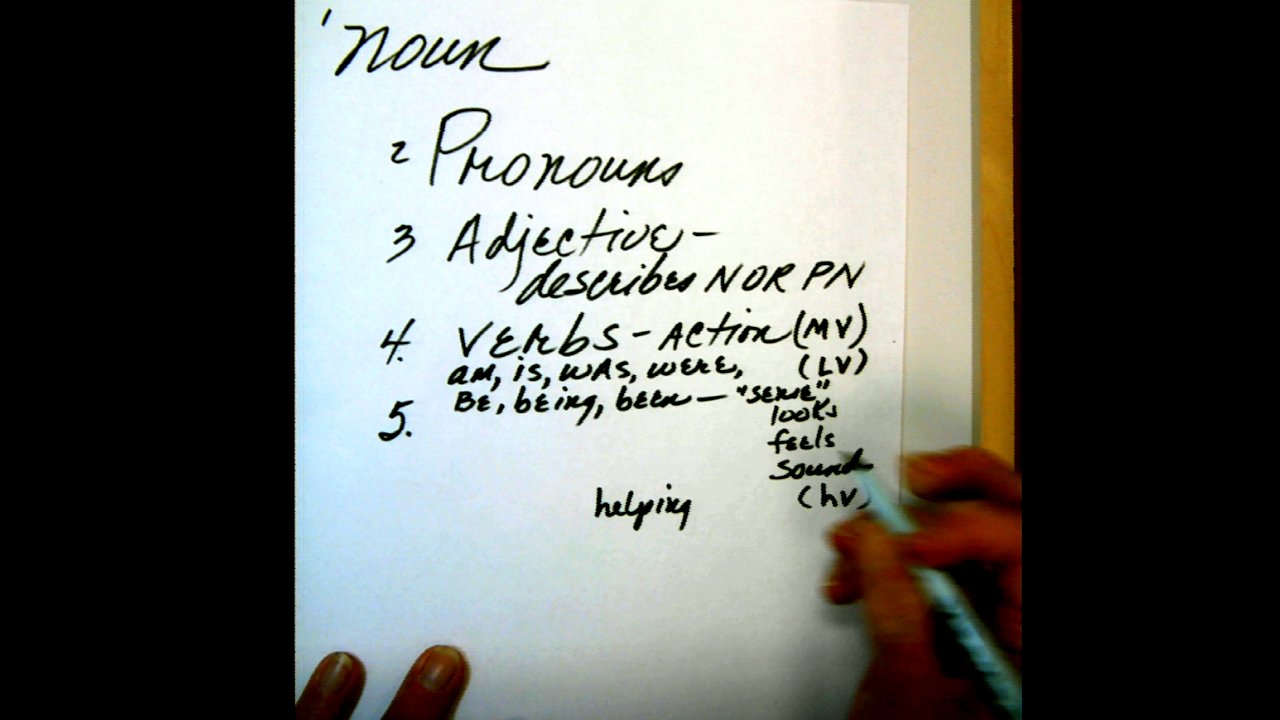 1 noun
2 Pronouns
3 Adjective -
describes N OR PN
4. Verbs - Action (MV)
am, is, was, were, (LV)
5. Be, being, been — "sense"
looks
feels
sound
helping (hv)